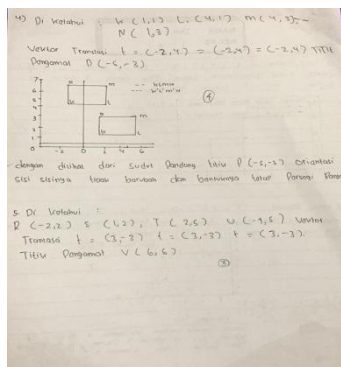 4) Diketahui : K (1,1) L (4,1) M (4,3),-
N (1,3)
Vektor Translasi t = (-2,4) = (-2,4) = (-2,4) Titik
Pengamat P (-5,-3)
7
6
5
4
3
2
1
0
-2
0
2
4
6
N
M
K
L
KLMN
K'L'M'N'
- dengan dilihat dari sudut Pandang titik P (-5,-3) orientasi
sisi sisinya tidak berubah dan bentuknya tetap Persegi
5. Diketahui :
R (-2,2) S (1,2), T (2,5) U (-1,5) Vektor
Translasi t = (3,-3) t = (3,-3) t = (3,-3).
Titik Pengamat V (6,6)